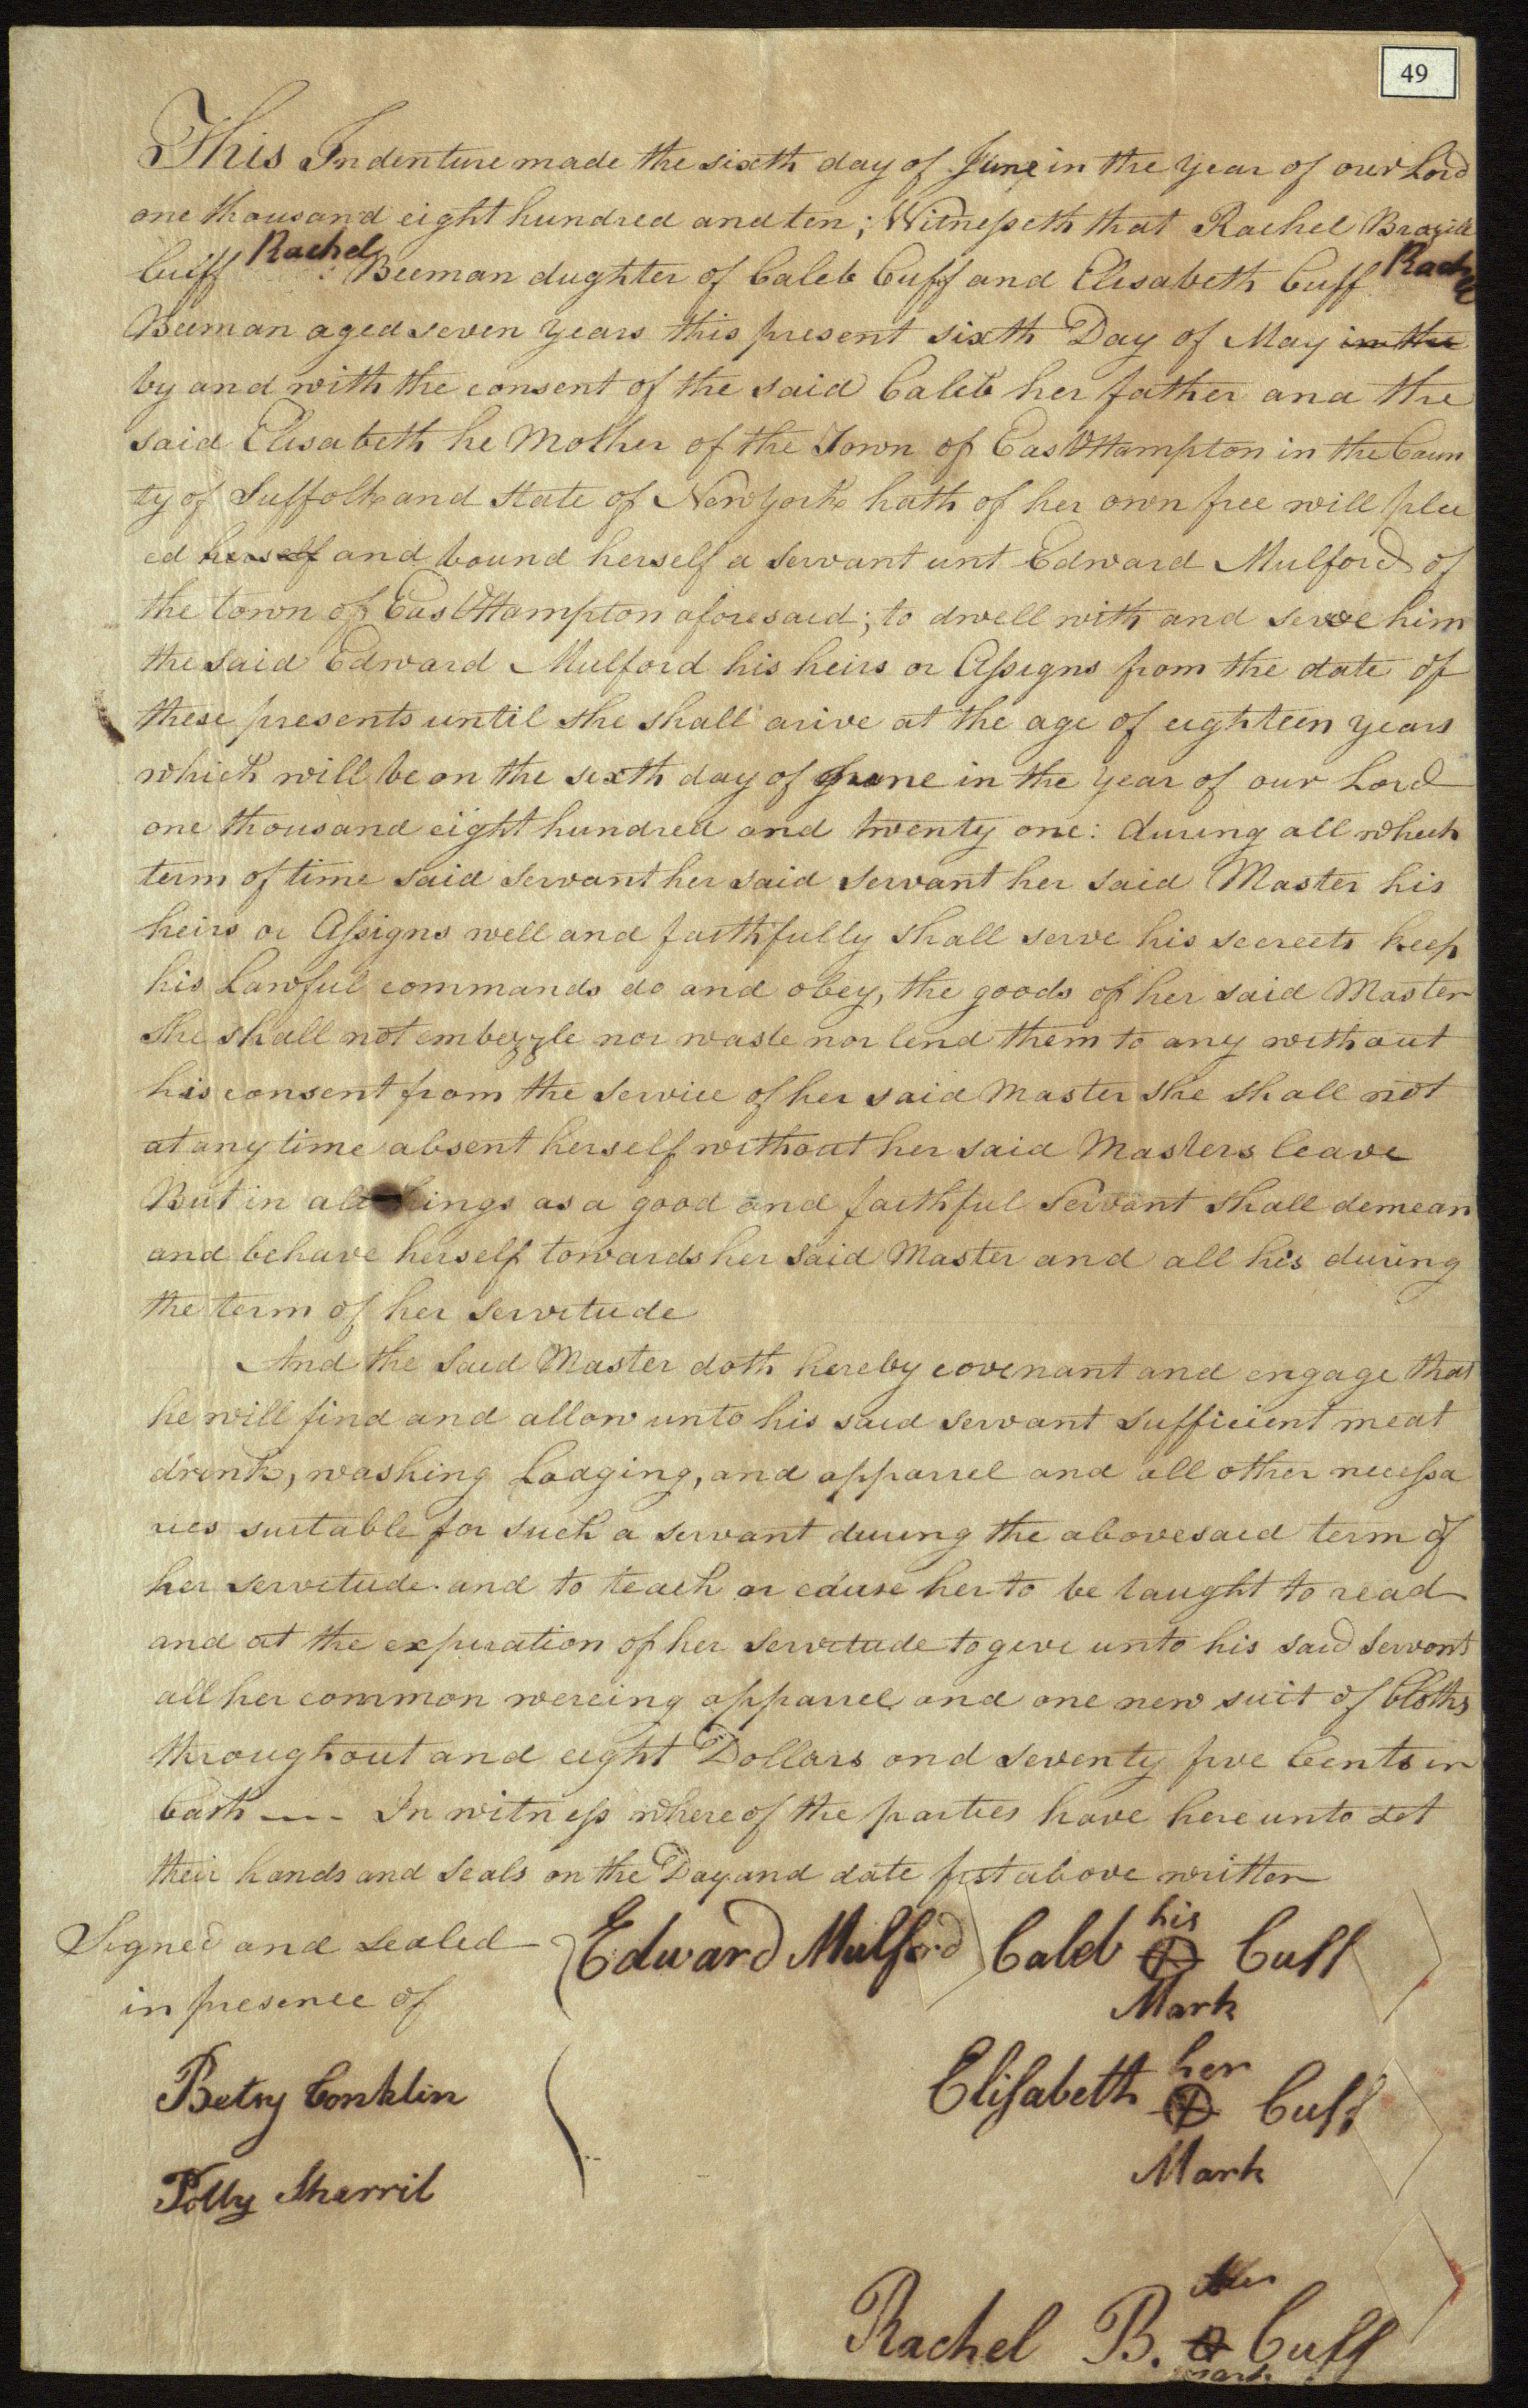 49
This Indenture made the sixth day of June in the year of our Lord
one thousand eight hundred and ten; Witnesseth that Rachel Brazill
Cuff Rachel Beeman dughter of Caleb Cuff and Elisabeth Cuff Rachel
Beeman aged seven years this present sixth Day of May in the
by and with the consent of the said Caleb her father and the
said Elisabeth he Mother of the Town of East Hampton in the Coun
ty of Suffolk and State of New York hath of her own free will plac
ed herself and bound herself a servant unt Edward Mulford of
the town of East Hampton aforesaid; to dwell with and serve him
the said Edward Mulford his heirs or Assigns from the date of
these presents until she shall arive at the age of eighteen years
which will be on the sixth day of June in the year of our Lord
one thousand eight hundred and twenty one: during all which
term of time said servant her said servant her said Master his
heirs or Assigns well and faithfully shall serve his secreets keep
his Lawful commands do and obey, the goods of her said Master
she shall not embezzle nor waste nor lend them to any without
his consent from the service of her said Master she shall not
at any time absent herself without her said Masters leave
But in all things as a good and faithful Servant shall demean
and behave herself towards her said Master and all his during
the term of her servitude
And the said Master doth hereby covenant and engage that
he will find and allow unto his said servant sufficient meat
drink, washing Lodging, and apparrel and all other necessa
ries suitable for such a servant during the abovesaid term of
her servitude and to teach or cause her to be taught to read
and at the expiration of her servitude to give unto his said servant
all her common wereing apparrel and one new suit of Cloths
throughout and eight Dollars and seventy five Cents in
Cash --- In witness whereof the parties have hereunto set
their hands and seals on the Day and date first above written
Signed and sealed
in presence of
Edward Mulford Caleb his Cuff
Mark
Betsy Conklin
Elisabeth her Cuff
Mark
Polly Sherril
Rachel B. her Cuff
mark